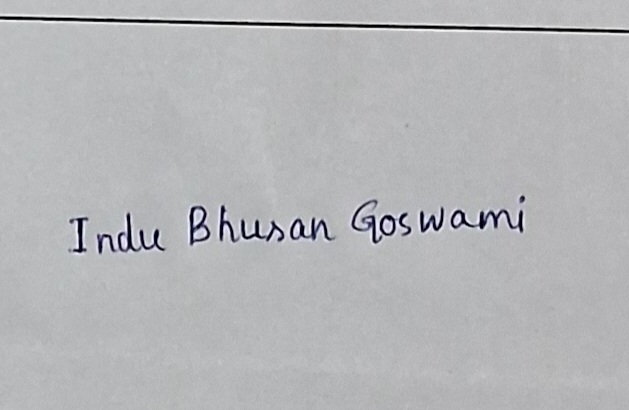 Indu Bhusan Goswami